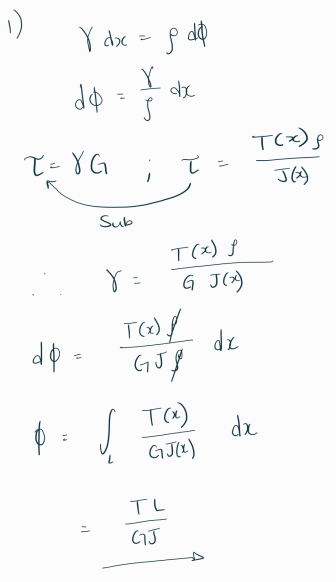 1) γ dx = ρ dϕ
dϕ = γ/ρ dx
τ = γG ; τ = T(x)ρ/J(x)
Sub
∴ γ = T(x)ρ/G J(x)
dϕ = T(x)ρ/GJρ dx
ϕ = ∫L T(x)/GJ(x) dx
= TL/GJ